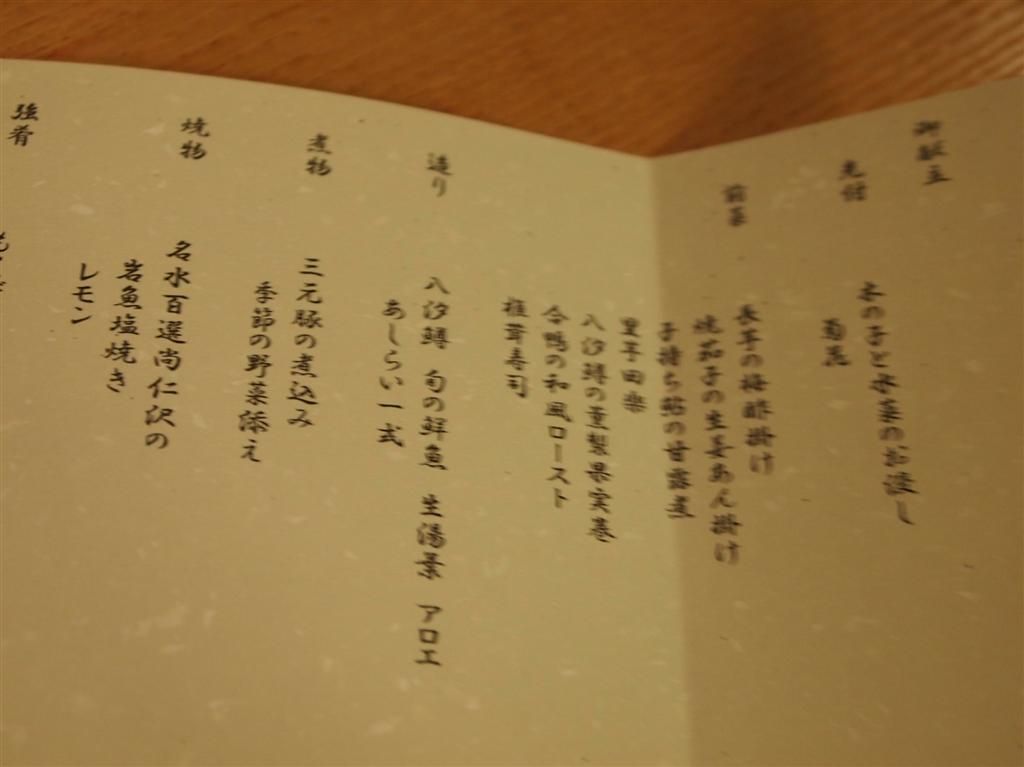 御献立
先付
木の子と水菜のお浸し
菊花
前菜
長芋の梅酢掛け
焼茄子の生姜あん掛け
子持ち鮎の甘露煮
里芋田楽
八汐鱒の薫製果実巻
合鴨の和風ロースト
椎茸寿司
造り
八汐鱒 旬の鮮魚 生湯葉 アロエ
あしらい一式
煮物
三元豚の煮込み
季節の野菜添え
焼物
名水百選尚仁沢の
岩魚塩焼き
レモン
強肴